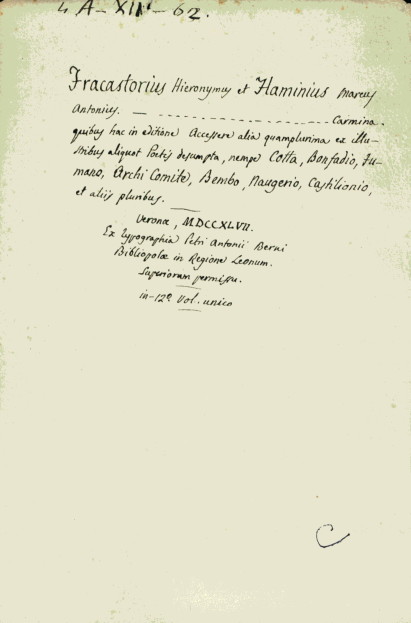 4 A - XIV - 62.
Fracastorius Hieronymus et Flaminius Marcus
Antonius. — Carmina.
quibus hac in editione Accessere alia quamplurima ex illu-
stribus aliquot Poetis desumpta, nempe Cotta, Bonfadio, Fu-
mano, Archi Comite, Bembo, Naugerio, Castilionio,
et aliis pluribus.
Veronæ, MDCCXLVII.
Ex Typographia Petri Antonii Berni
Bibliopolæ in Regione Leonum.
Superiorum permissu.
in-12º Vol. unico
C